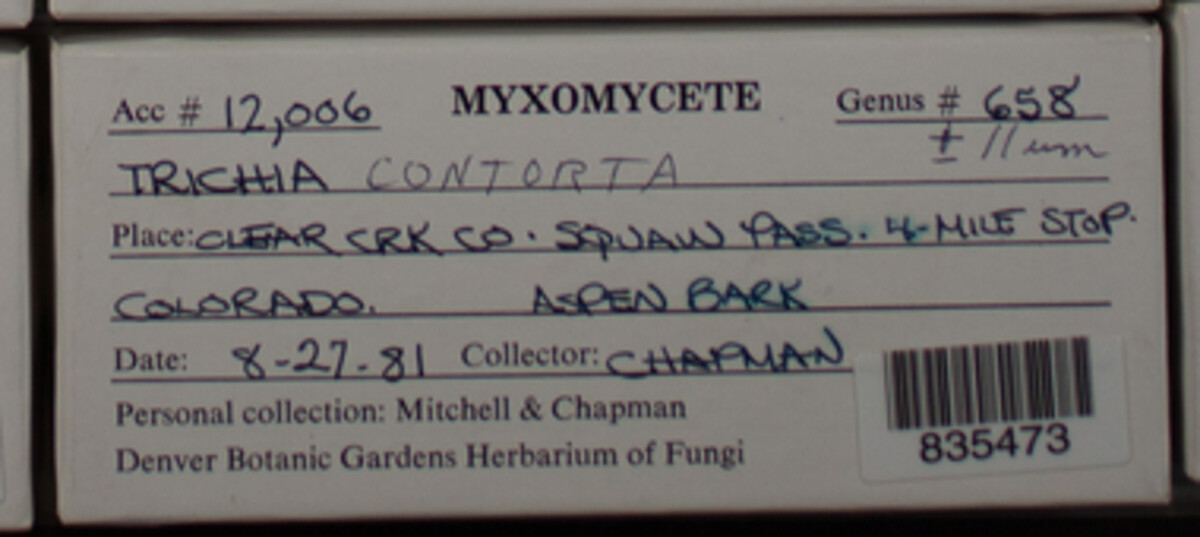 Acc # 12,006 MYXOMYCETE Genus # 658
± 11 um
TRICHIA CONTORTA
Place: CLEAR CRK CO. SQUAW PASS. 4-MILE STOP.
COLORADO. ASPEN BARK
Date: 8-27-81 Collector: CHAPMAN
Personal collection: Mitchell & Chapman
Denver Botanic Gardens Herbarium of Fungi
835473